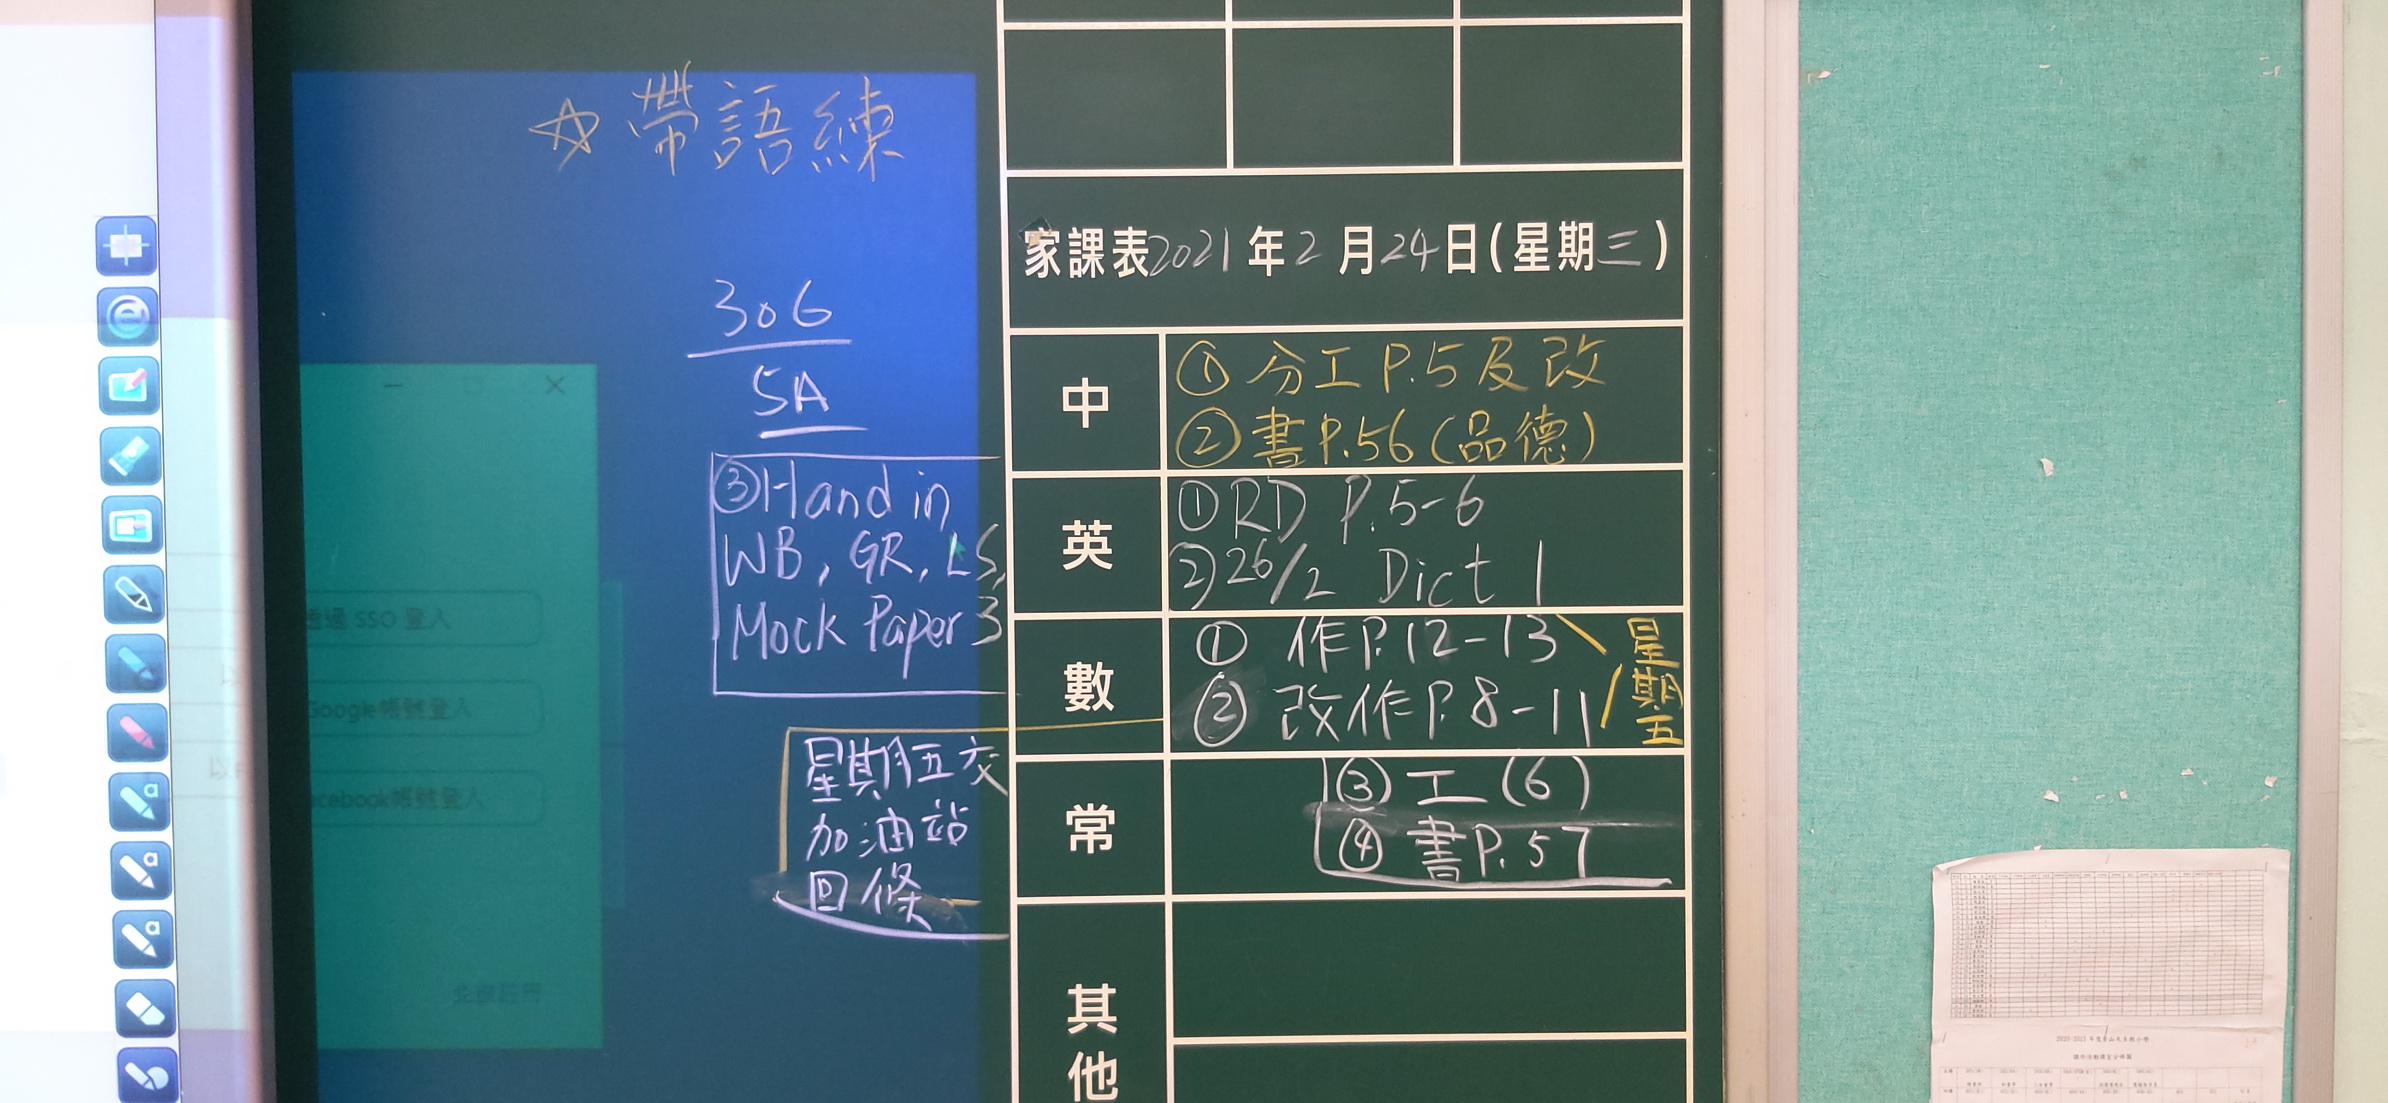 ☆帶語練
306
5A
③Hand in
WB, GR, LS,
Mock Paper 3
星期五交
加油站
回條
家課表2021年2月24日(星期三)
中
①分工P.5及改
②書P.56(品德)
英
①RD P.5-6
②26/2 Dict 1
數
① 作P.12-13
② 改作P.8-11
星期五
常
③工(6)
④書P.57
其他
SSO 登入
Google帳號登入
acebook帳號登入